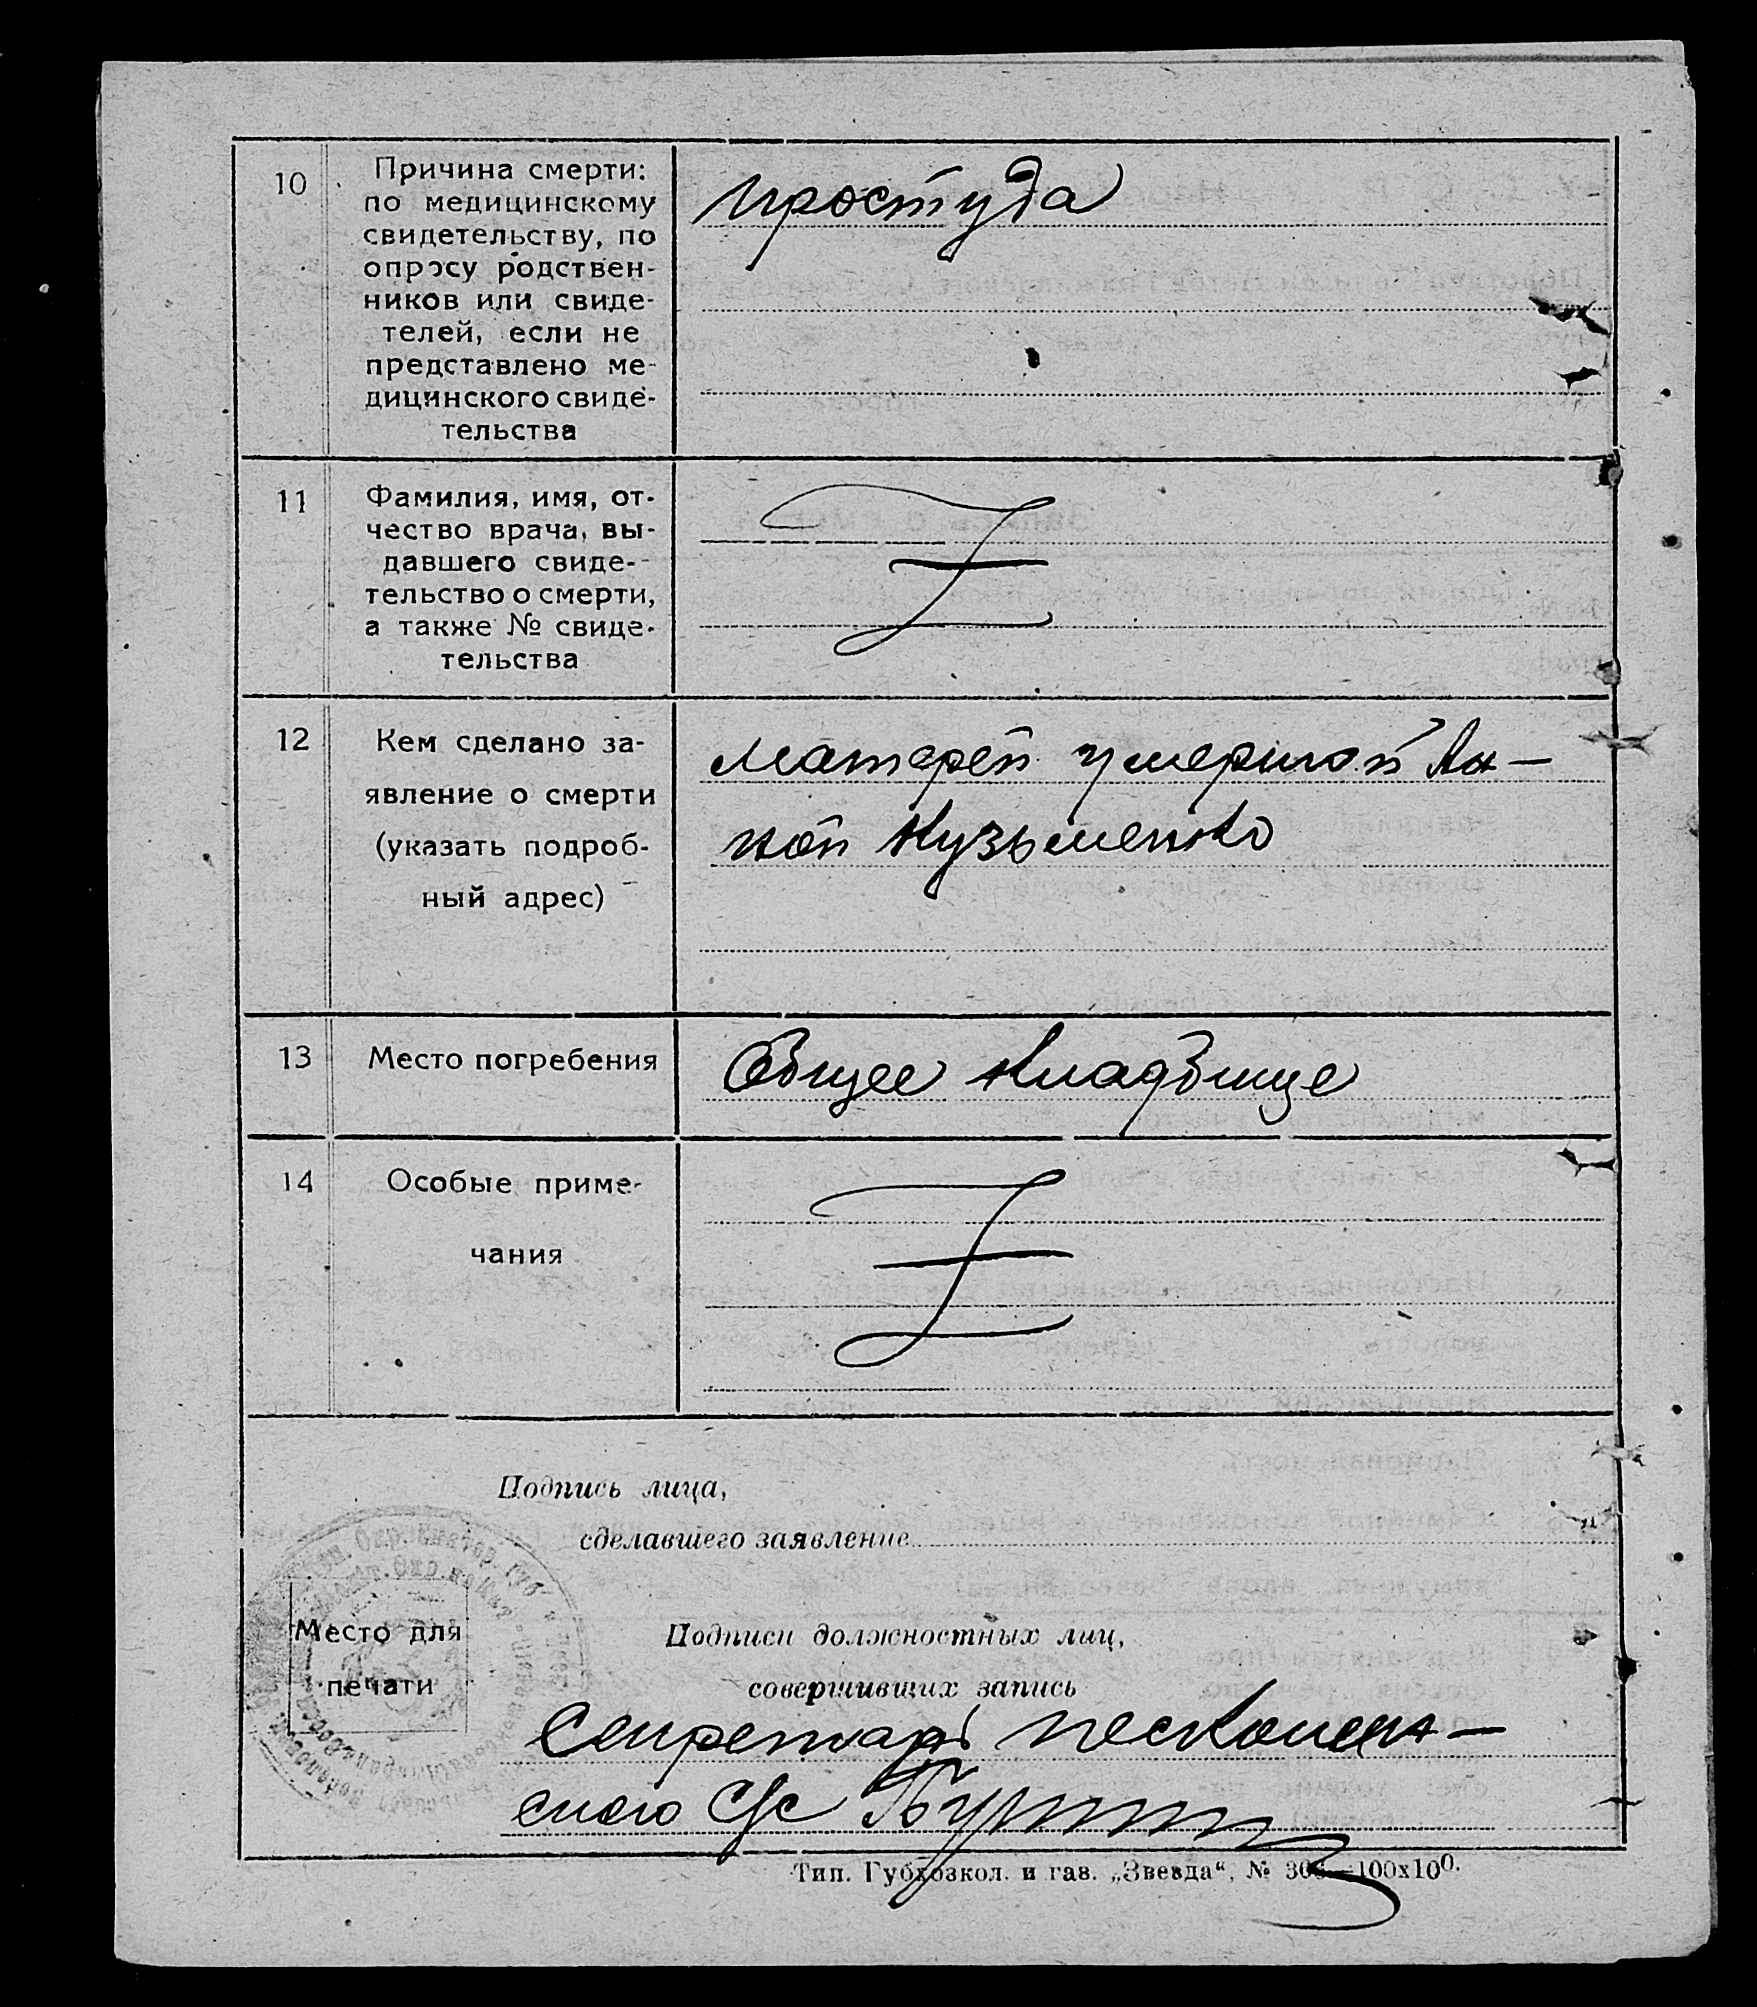 10
Причина смерти:
по медицинскому
свидетельству, по
опросу родствен-
ников или свиде-
телей, если не
представлено ме-
дицинского свиде-
тельства
простуда
11
Фамилия, имя, от-
чество врача, вы-
давшего свиде-
тельство о смерти,
а также № свиде-
тельства
Z
12
Кем сделано за-
явление о смерти
(указать подроб-
ный адрес)
матерей умершой Ан-
ной Кузьменко
13
Место погребения
Общее кладбище
14
Особые приме-
чания
Z
Подпись лица,
сделавшего заявление
Место для
печати
Подписи должностных лиц,
совершивших запись
Секретарь
ского с/с
Тип. Губхозкол. и газ. „Звезда“, № 100х100.